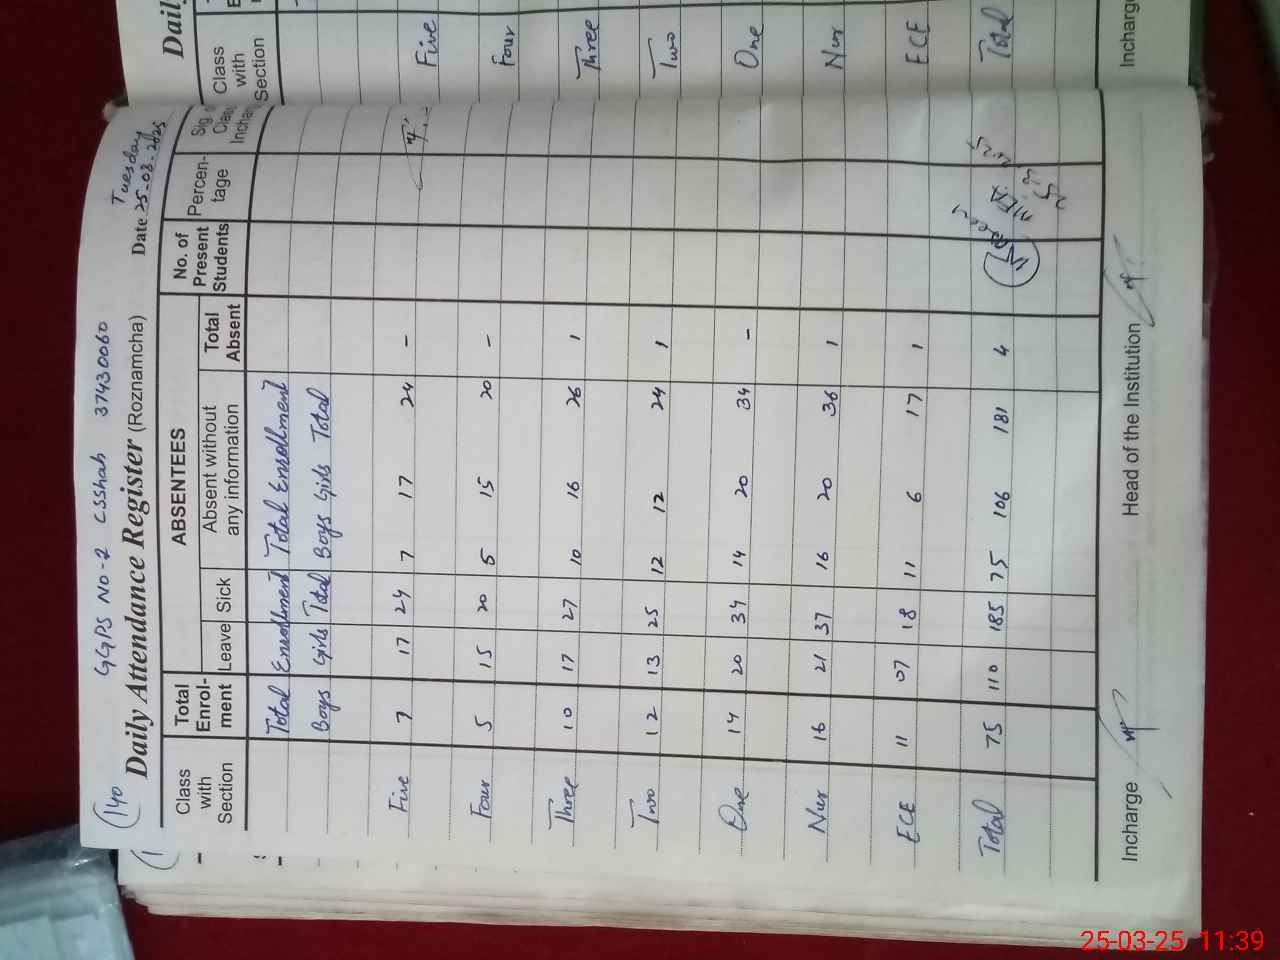 140 GGPS NO-2 CSShah 37430060 Tuesday
Daily Attendance Register (Roznamcha) Date 25-03-2025
Class with Section
Total Enrol-ment
ABSENTEES
Leave Sick Absent without any information Total Absent
No. of Present Students
Percen-tage
Sig. Clas Inchar
Total Enrollment Total Enrollment
Boys Girls Total Boys Girls Total
Five 7 17 24 7 17 24 -
Four 5 15 20 5 15 20 -
Three 10 17 27 10 16 26 1
Two 12 13 25 12 12 24 1
One 14 20 34 14 20 34 -
Nur 16 21 37 16 20 36 1
ECE 11 07 18 11 6 17 1
Total 75 110 185 75 106 181 4
Incharge Head of the Institution
Daily
Class with Section
Five
Four
Three
Two
One
Nur
ECE
Total
Incharge
25-03-25 11:39